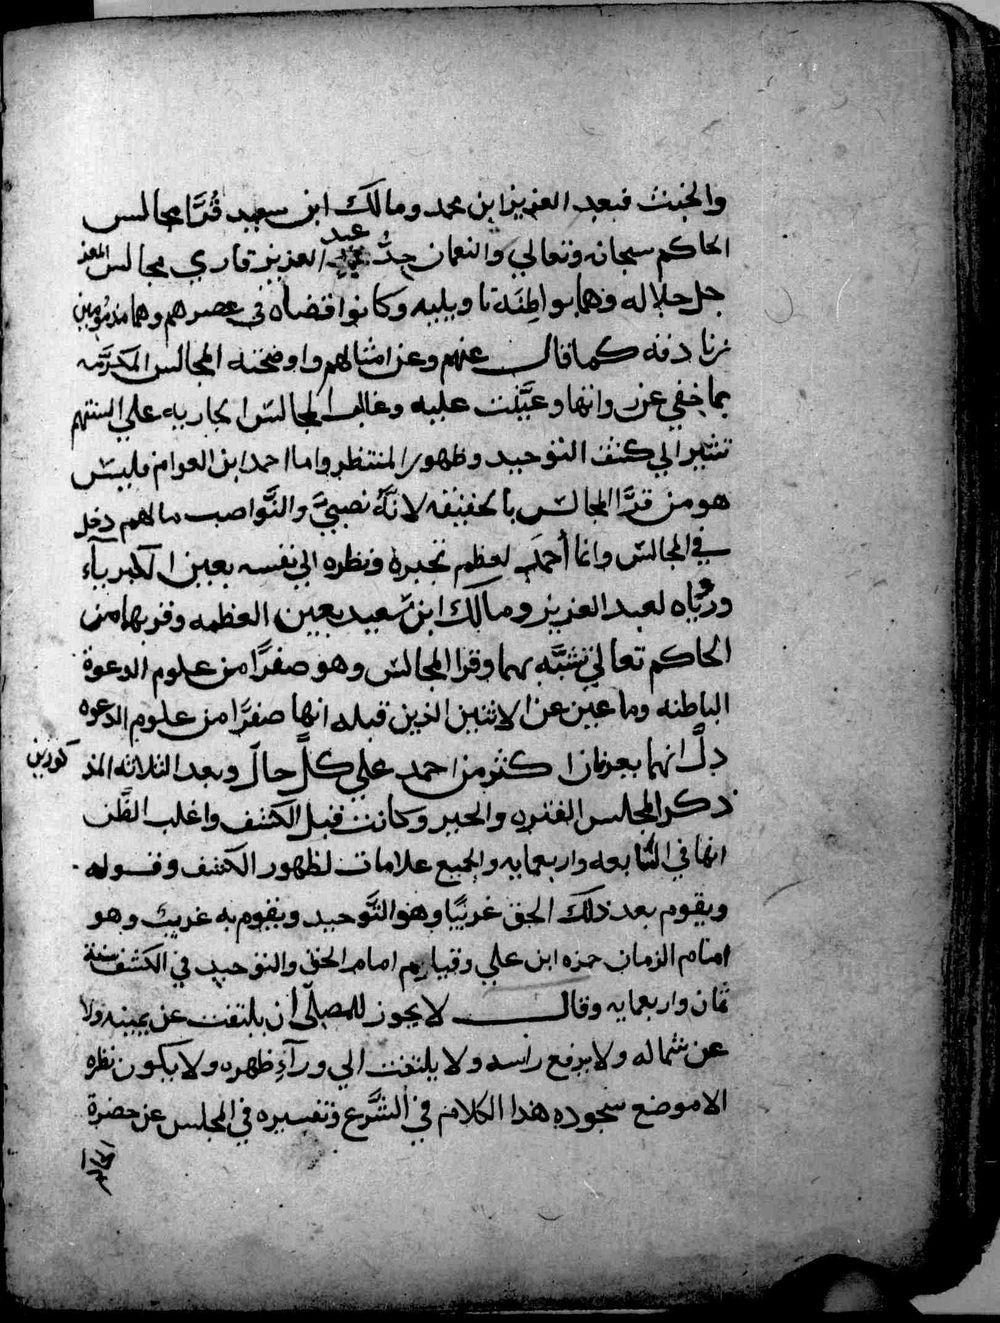 والخبث فبعد العزيز ابن محمد ومالك ابن سعيد قُرَّا مجالس
الحاكم سبحانه وتعالي والنعمان جدُّ عبد العزيز قاري مجالس المعز
جل جلاله وهما بواطنة تاويليه وكانوا قضاه في عصرهم وهما مذمومين
زنادقه كما قال عنهم وعن امثالهم واوضحته المجالس المكرَّمه
بما خفي عن وانها وعيَّنت عليه وغالب المجالس الجاريه علي السنتهم
تشير الي كشف التوحيد وظهور المنتظر واما احمد ابن العوام فليس
هو من قرَّا المجالس بالحقيقه لانَّهُ نصبيَّ والنَّواصب ما لهم دخل
في المجالس وانما أحمَد لعظم تجبره ونظره الي نفسه بعين الكبريآء
ورؤياه لعبد العزيز ومالك ابن سَعيد بعين العظمه وقربهما من
الحاكم تعالي تشبَّه بهما وقرا المجالس وهو صفرًا من علوم الدعوة
الباطنه وما عين عن الاثنين الذين قبله انها صفرًا من علوم الدعوه
دلَّ انهما يعرفان اكثر من احمد علي كلِّ حال وبعد الثلاثه المذ
كورين
ذكر المجلس الفتره والحير وكانت قبل الكشف واغلب الظَّن
انها في السَّابعه واربعمايه والجميع علامات لظهور الكشف وقوله
ويقوم بعد ذلك الحق غريبًا وهو التَّوحيد ويقوم به غريبٌ وهو
امام الزمان حمزه ابن علي وقيامه امام الحق والتوحيد في الكشف سنة
ثمان واربعمايه وقال لا يجوز للمصلّي أن يلتفت عن يمينه ولا
عن شماله ولا يرفع راسه ولا يلتفت الي ورآءِ ظهره ولا يكون نظره
الا موضع سجوده هذا الكلام في الشَّرع وتفسيره في المجلس عن حضرة